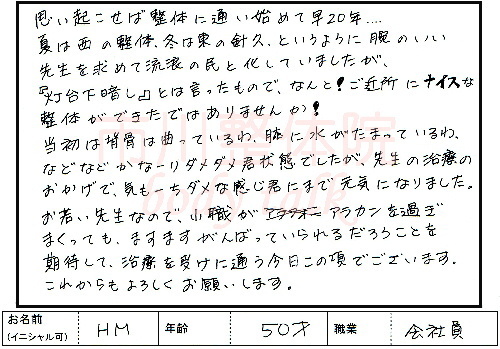 思い起こせば整体に通い始めて早20年....
夏は西の整体、冬は東の針灸、というように腕のいい
先生を求めて流浪の民と化していましたが、
『灯台下暗し』とは言ったもので、なんと!ご近所にナイスな
整体ができたではありませんか!
当初は背骨は曲っているわ、膝に水がたまっているわ、
などなどかなーりダメダメ君状態でしたが、先生の治療の
おかげで、気もーちダメな感じ君にまで元気になりました。
お若い先生なので、小職が アラカンを過ぎ
まくっても、ますますがんばっていられるだろうことを
期待して、治療を受けに通う今日この頃でございます。
これからもよろしくお願いします。
お名前
(イニシャル可)
HM
年齢
50才
職業
会社員